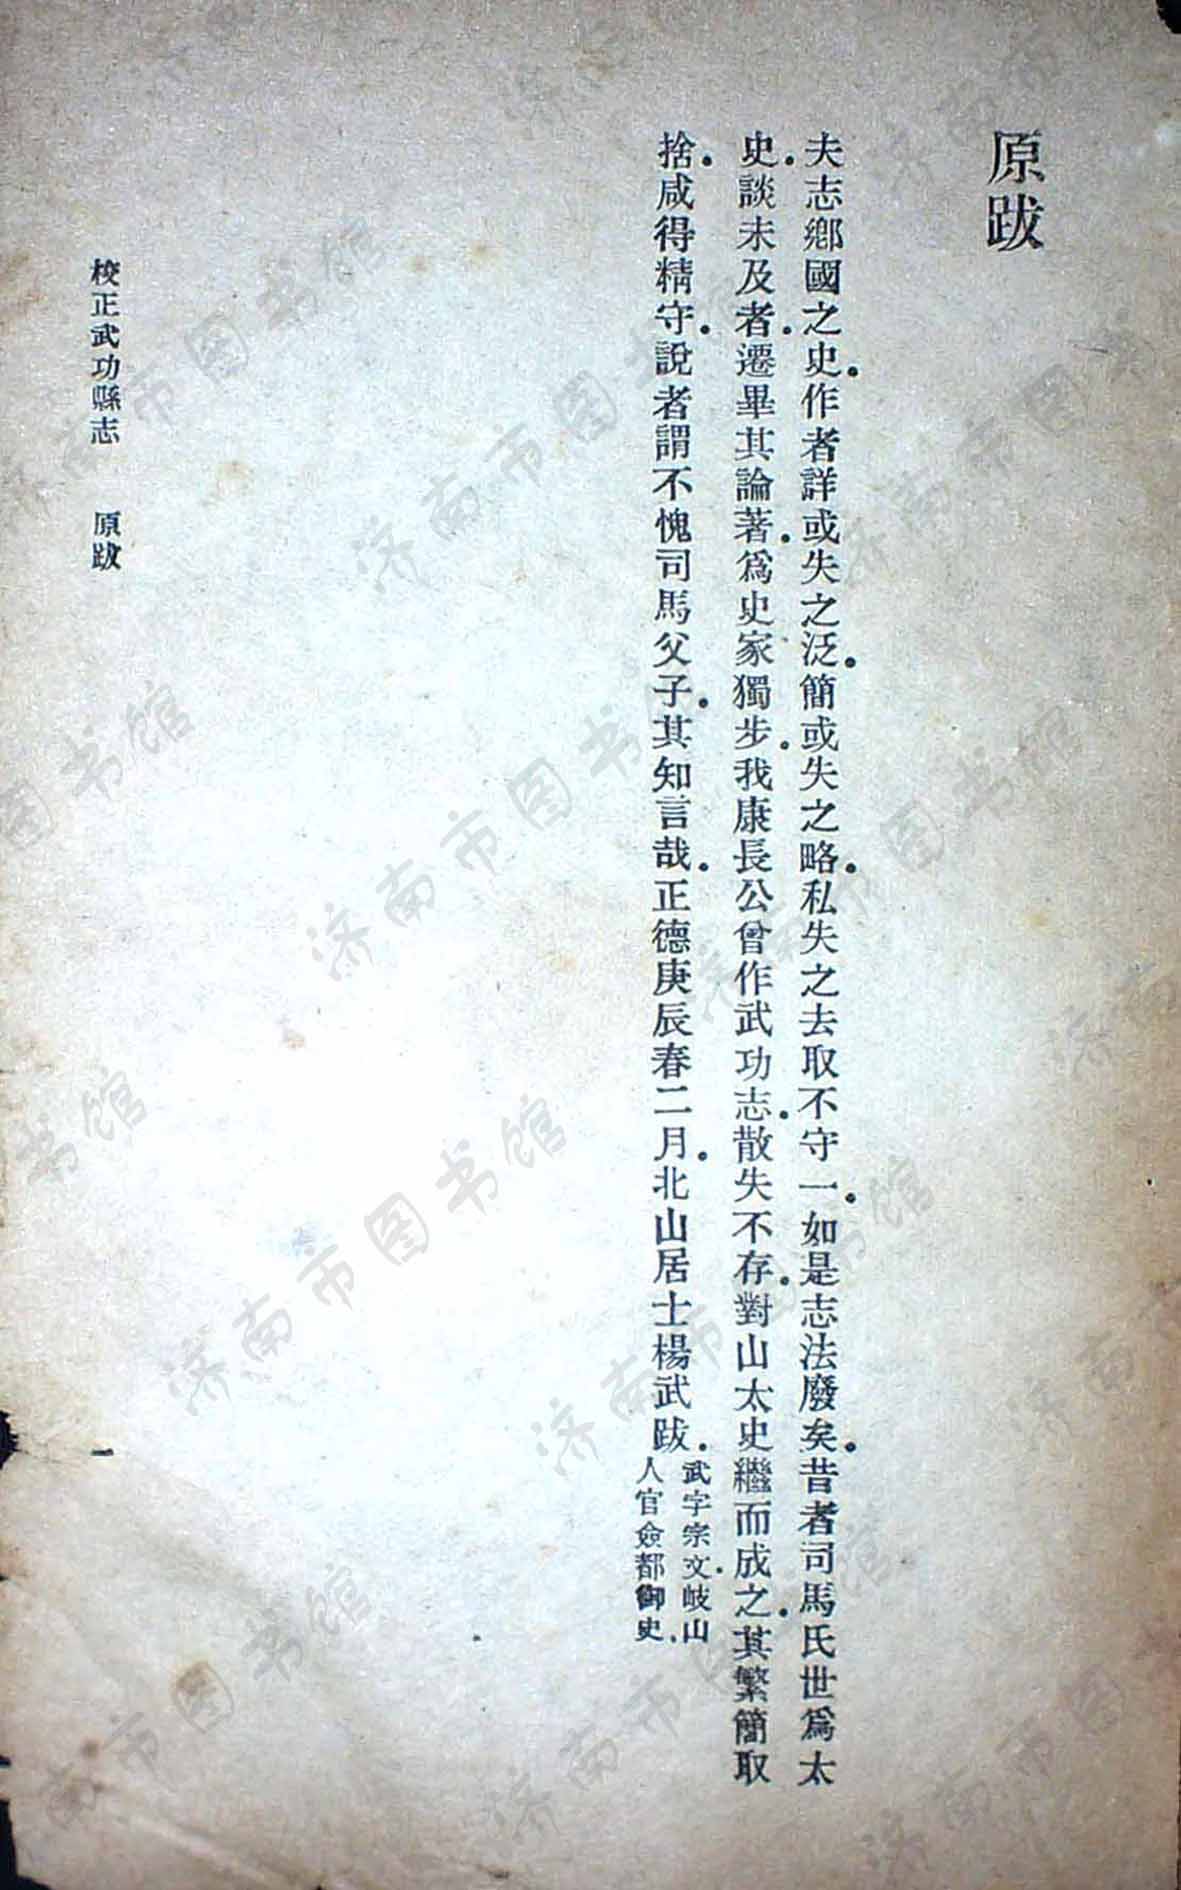 原跋
夫志鄉國之史。作者詳或失之泛。簡或失之略。私失之去取不守一。如是志法廢矣。昔者司馬氏世爲太
史。談未及者。遷畢其論著。爲史家獨步。我康長公曾作武功志。散失不存。對山太史繼而成之。其繁簡取
捨。咸得精守。說者謂不愧司馬父子。其知言哉。正德庚辰春二月。北山居士楊武跋。
武字宗文。岐山
人官僉都御史。
校正武功縣志　原跋
一
济南市图书馆